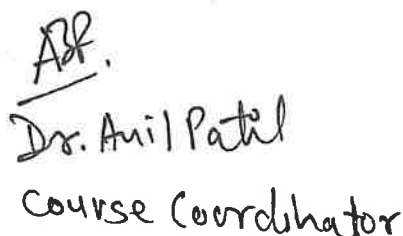 ABP.
Dr. Anil Patil
Course Coordinator